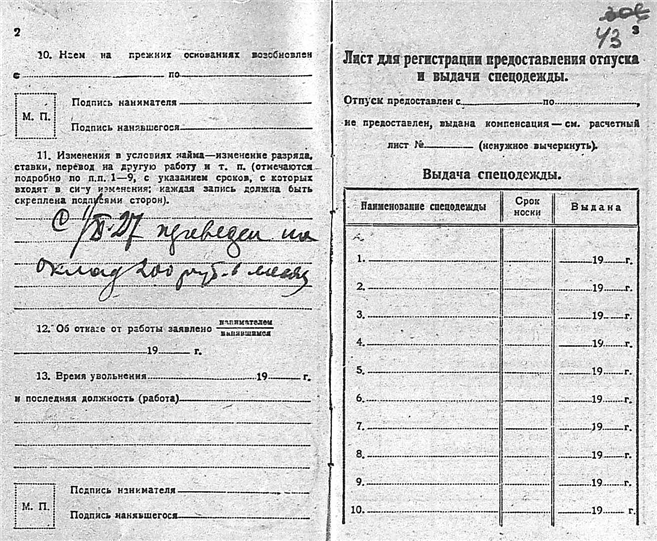 2
10. Наем на прежних основаниях возобновлен
с по
М. П.
Подпись нанимателя
Подпись нанявшегося
11. Изменения в условиях найма—изменение разряда,
ставки, перевод на другую работу и т. п. (отмечаются
подробно по п.п. 1—9, с указанием сроков, с которых
входят в силу изменения; каждая запись должна быть
скреплена подписями сторон).
С 1/II-27 переведен на
оклад 200 руб. в месяц
12. Об отказе от работы заявлено нанимателем
нанявшимся
19 г.
13. Время увольнения 19 г.
и последняя должность (работа)
М. П.
Подпись нанимателя
Подпись нанявшегося
43
3
Лист для регистрации предоставления отпуска
и выдачи спецодежды.
Отпуск предоставлен с по ,
не предоставлен, выдана компенсация—см. расчетный
лист № (ненужное вычеркнуть).
Выдача спецодежды.
Наименование спецодежды Срок носки Выдана
1. 19 г.
2. 19 г.
3. 19 г.
4. 19 г.
5. 19 г.
6. 19 г.
7. 19 г.
8. 19 г.
9. 19 г.
10. 19 г.